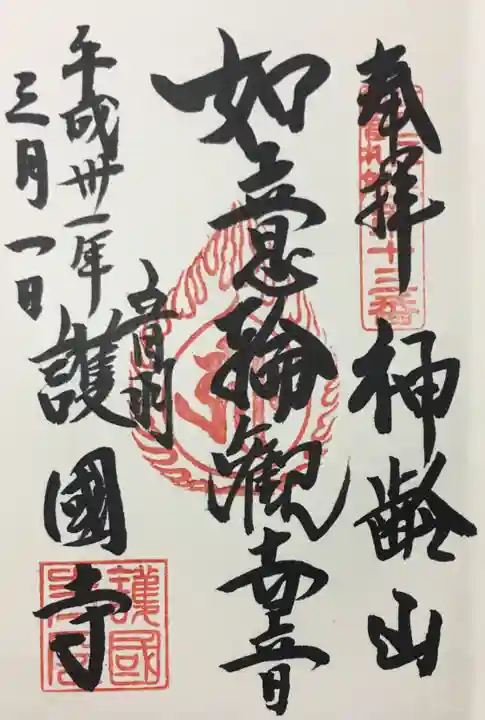 奉拝
神齢山
如意輪観世音
音羽
護國寺
平成卅一年
三月一日
十三番
護國